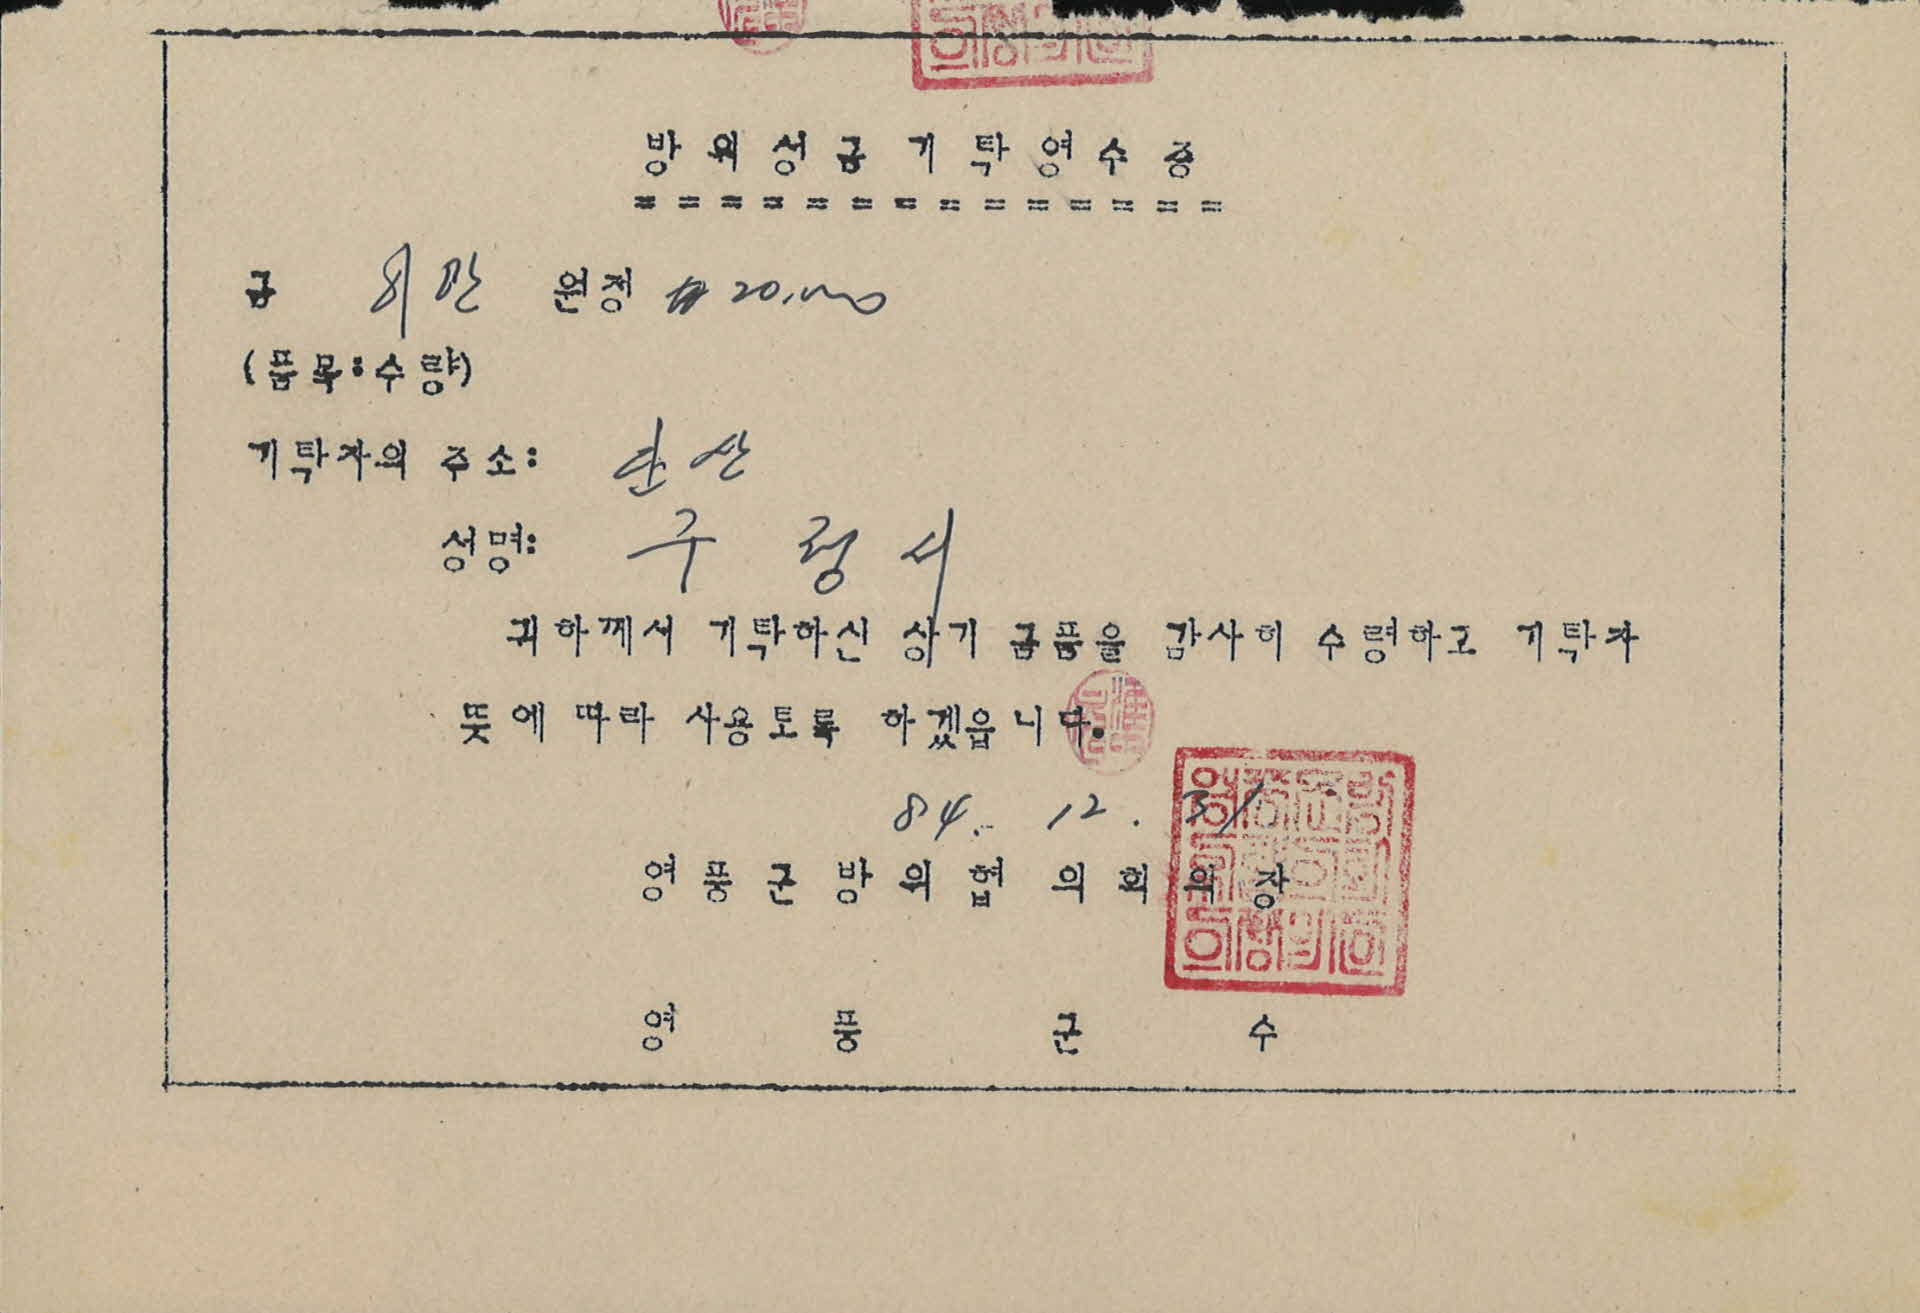 방위성금기탁영수증
==============
금 이만 원정 #20,000
(품목:수량)
기탁자의 주소: 단산
성명: 구 령 서
귀하께서 기탁하신 상기 금품을 감사히 수령하고 기탁자
뜻에 따라 사용토록 하겠읍니다.
84. 12. 31
영풍군방위협의회의장
영풍군수